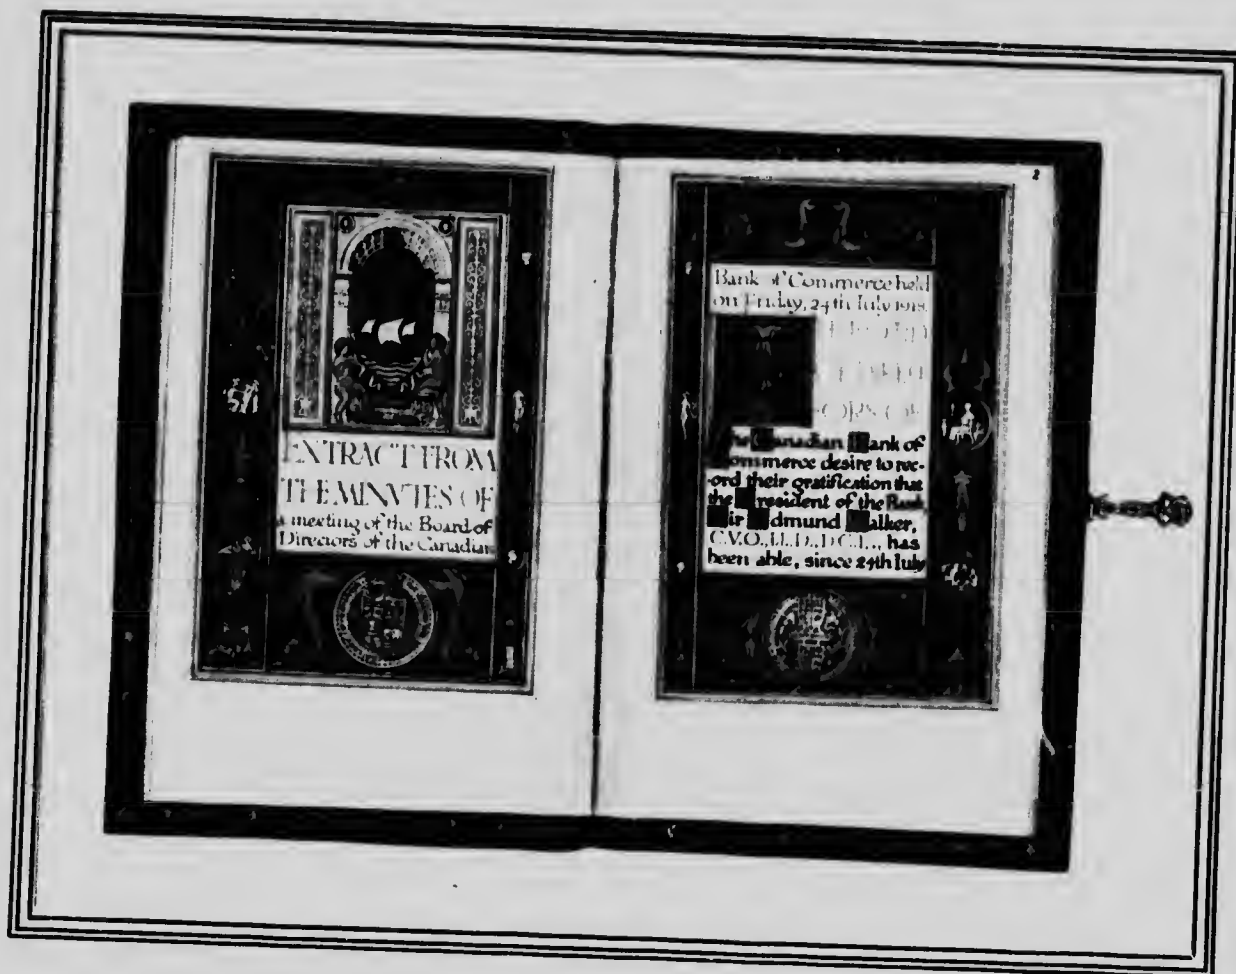 EXTRACT FROM
THE MINVTES OF
a meeting of the Board of
Directors of the Canadian
2
Bank of Commerce held
on Friday, 24th July 1918.
The Canadian Bank of
Commerce desire to rec-
-ord their gratification that
the President of the Bank,
Sir Edmund Walker,
C.V.O., LL.D., D.C.L., has
been able, since 24th July